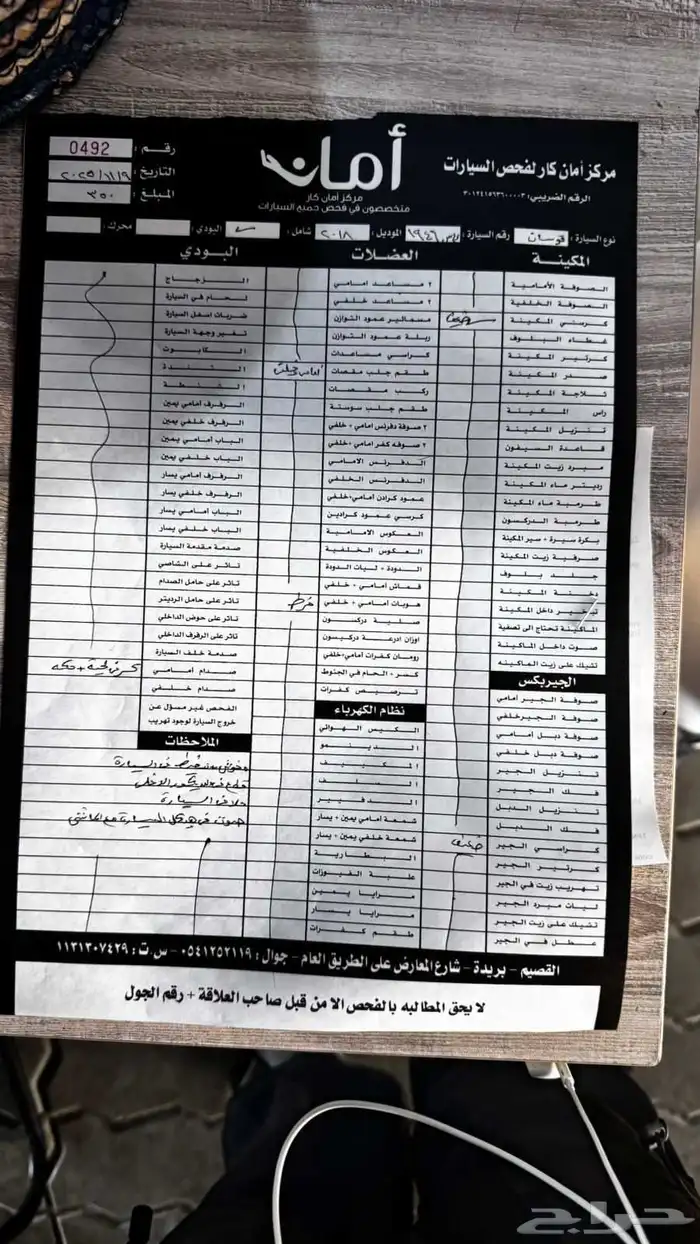 مركز أمان كار لفحص السيارات
الرقم الضريبي: ٣٠١٢٤١٥٦٣٦٠٠٠٠٣
أمان
مركز أمان كار
متخصصون في فحص جميع السيارات
رقم: 0492
التاريخ: ٢٠٢٥/١١/٩
المبلغ: ٣٥٠
نوع السيارة: رقم السيارة: ١٩٤٦ الموديل: ٢٠١٨ شامل: البودي: محرك:
المكينة
الصوفة الأمامية
الصوفة الخلفية
كرسي المكينة
غطاء البلوف
كرتير المكينة
صدر المكينة
ثلاجة المكينة
راس المكينة
تنزيل المكينة
قاعدة السيفون
مبرد زيت المكينة
رديتر ماء المكينة
طرمبة ماء المكينة
طرمبة الدركسون
بكرة سيرة + سير المكينة
صرفية زيت المكينة
جلد بلوف
دخنة المكينة
تبخير داخل المكينة
الماكينة تحتاج الى تصفية
صوت داخل الماكينة
تشيك على زيت الماكينه
الجيربكس
صوفة الجير امامي
صوفة الجير خلفي
صوفة دبل امامي
صوفة دبل خلفي
تنزيل الجير
فك الجير
تنزيل الدبل
فك الدبل
كراسي الجير
ضعيف
كرتير الجير
تهريب زيت في الجير
ليات مبرد الجير
تشيك على زيت الجير
عطل في الجير
العضلات
٢ مساعد امامي
٢ مساعد خلفي
مسمالير عمود التوازن
ربلة عمود التوازن
كراسي مساعدات
طقم جلب مقصات
ركب مقصات
طقم جلب سوستة
٢ صوفة دفرنس امامي + خلفي
٢ صوفه كفر امامي + خلفي
الدفرنس الامامي
الدفرنس الخلفي
عمود كرادن امامي + خلفي
كرسي عمود كرادين
العكوس الامامية
العكوس الخلفية
الدودة + ليات الدودة
قماش امامي + خلفي
هوبات امامي + خلفي
خرط
صلية دركسون
اوزان ادرعة دركيسون
رومان كفرات امامي + خلفي
كسر + الحام في الجنوط
ترصيص كفرات
نظام الكهرباء
الكيس الهوائي
الدينمو
المكييف
السلف
الدفيير
شمعة امامي يمين + يسار
شمعة خلفي يمين + يسار
البطارية
علبة الفيوزات
مرايا يمين
مرايا يسار
طقم كفرات
البودي
الزجاج
لحام في السيارة
ضربات اسفل السيارة
تغير وجهة السيارة
الكابوت
الشندة
الشنطة
الرفرف أمامي يمين
الرفرف خلفي يمين
الباب أمامي يمين
الباب خلفي يمين
الرفرف أمامي يسار
الرفرف خلفي يسار
الباب امامي يسار
الباب خلفي يسار
صدمة مقدمة السيارة
تاثر على الشاصي
تاثر على حامل الصدام
تاثر على حامل الرديتر
تاثر على حوض الداخلي
تاثر على الرفرف الداخلي
صدمة خلف السيارة
صدام امامي
صدام خلفي
الفحص غير مسؤل عن
خروج السيارة لوجود تهريب
الملاحظات
السيارة
السيارة
القصيم - بريدة - شارع المعارض على الطريق العام - جوال: ٠٥٤١٢٥٢١١٩ - س.ت: ١١٣١٣٠٧٤٢٩
لا يحق المطالبه بالفحص الا من قبل صاحب العلاقة + رقم الجول
حراج